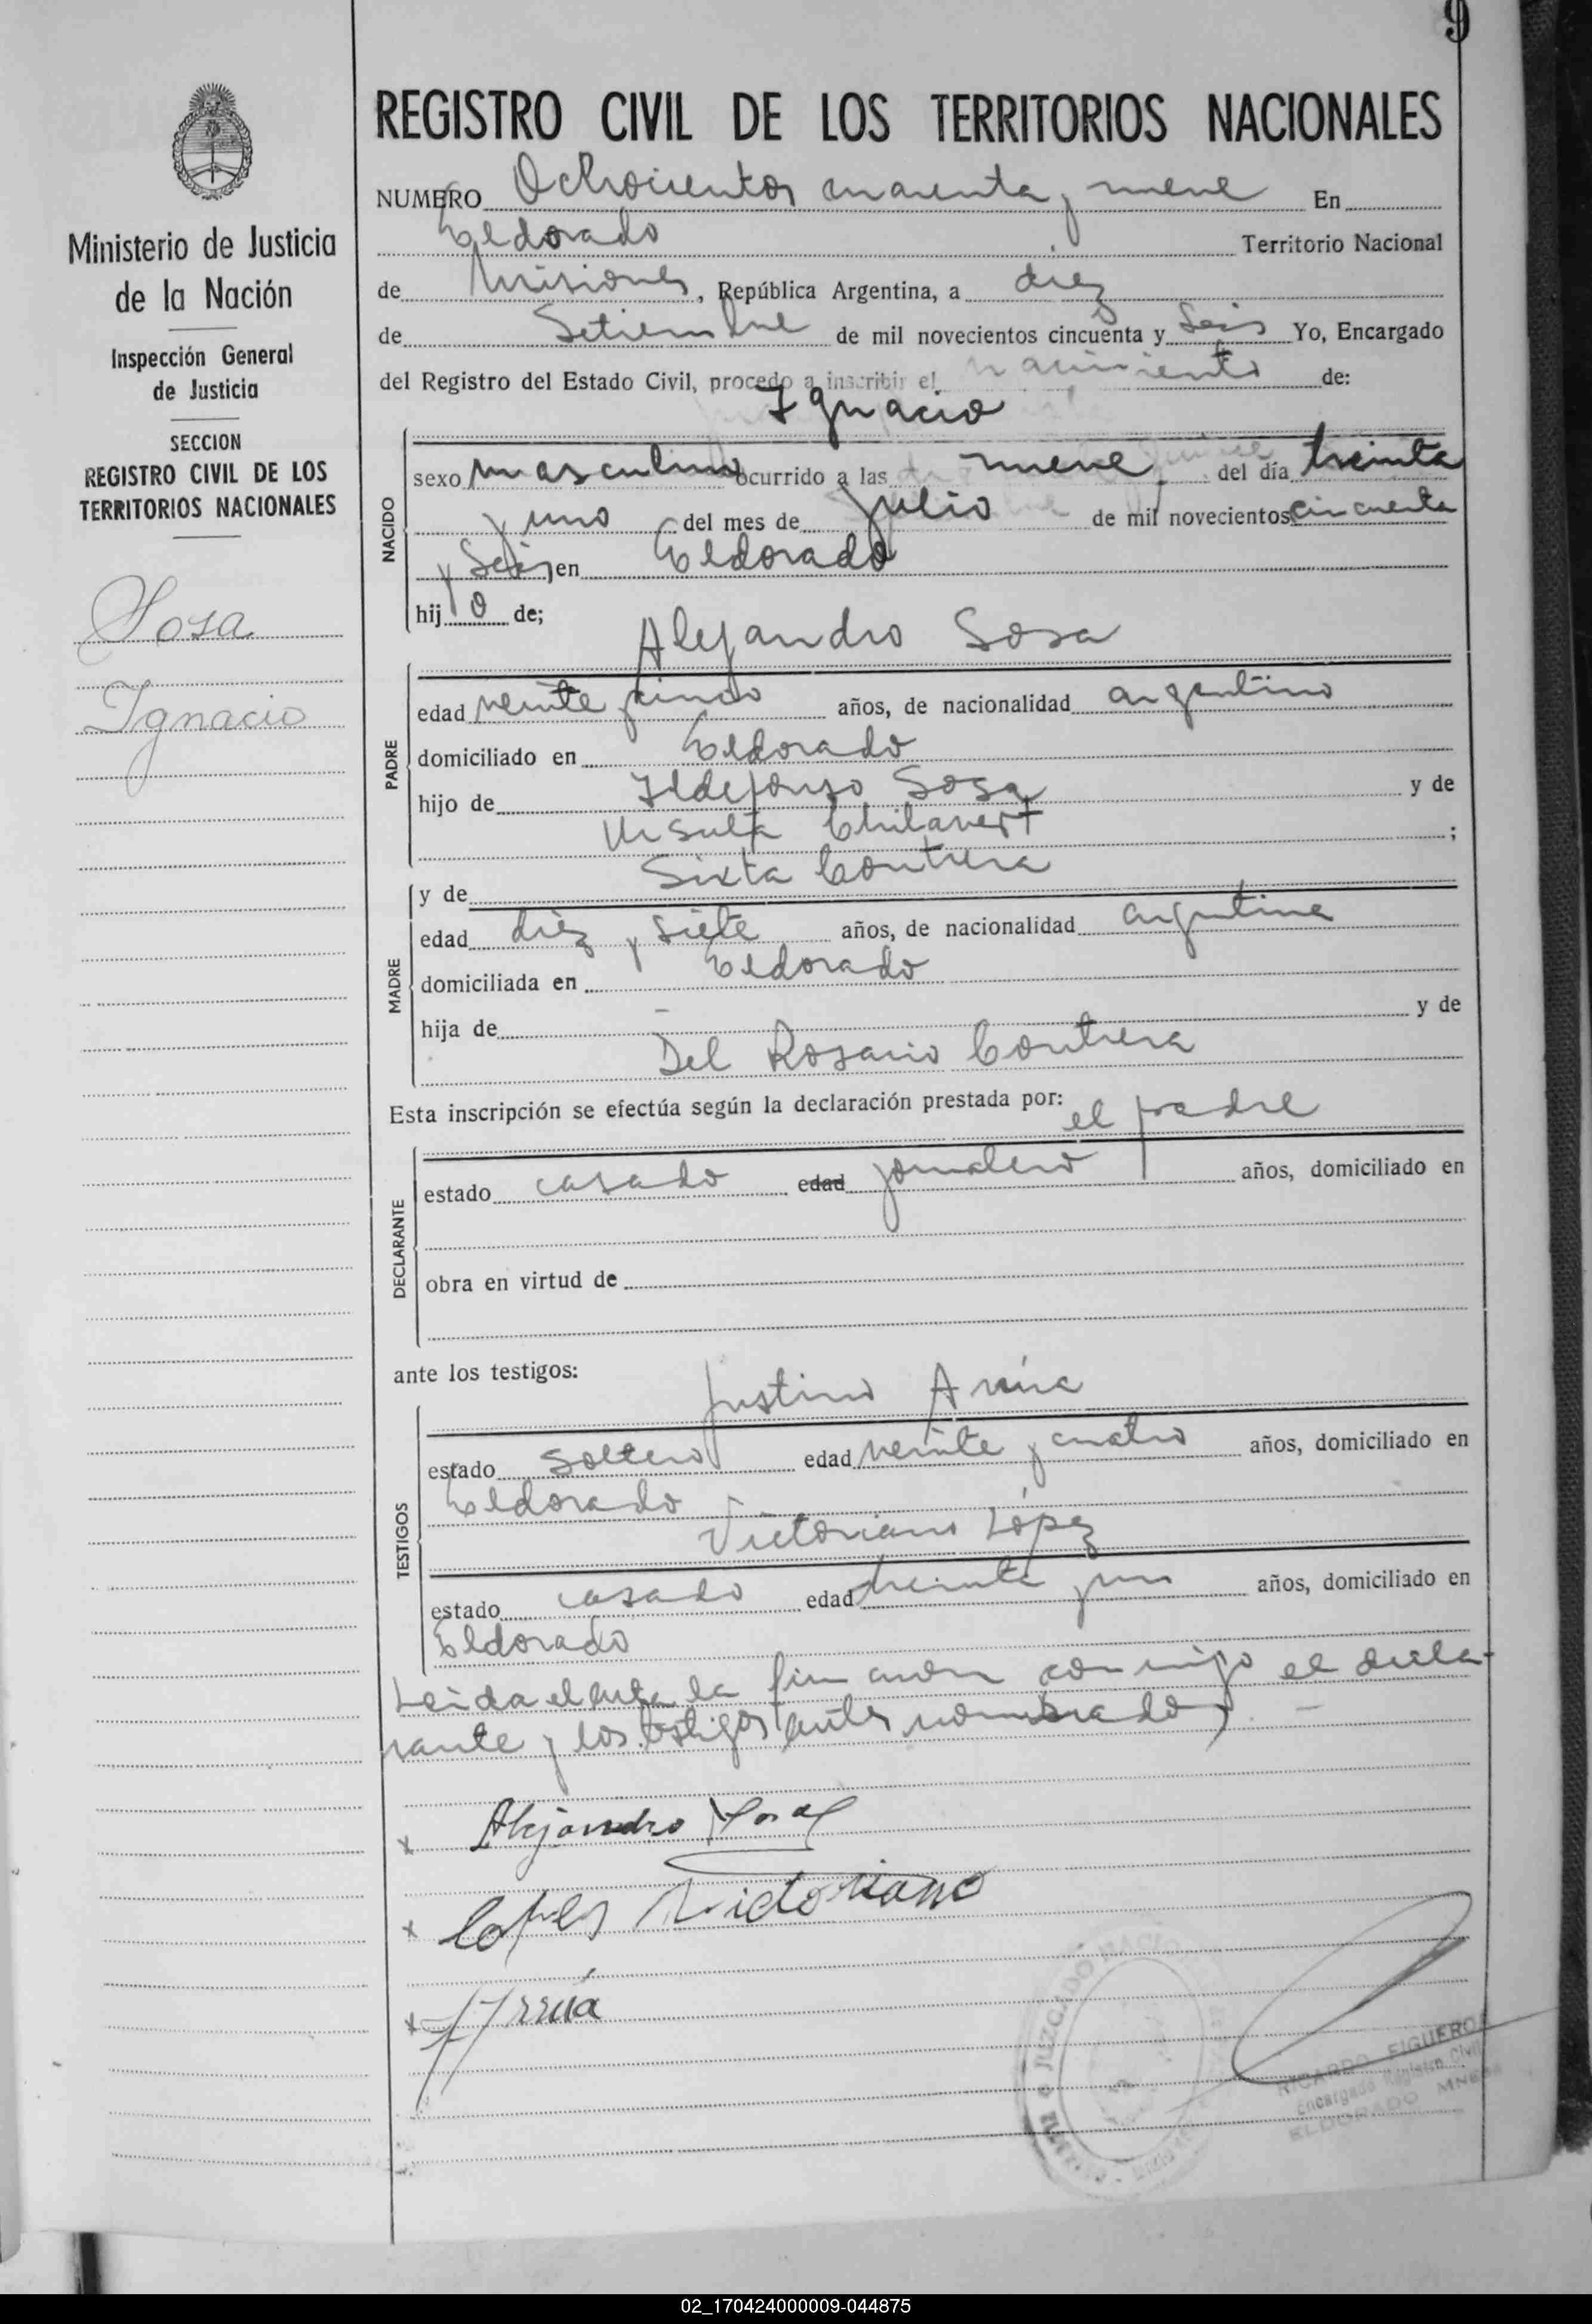 9
REGISTRO CIVIL DE LOS TERRITORIOS NACIONALES
NUMERO Ochocientos cuarenta y nueve En
Eldorado Territorio Nacional
de Misiones, República Argentina, a diez
de Setiembre de mil novecientos cincuenta y Seis Yo, Encargado
del Registro del Estado Civil, procedo a inscribir el nacimiento de:
Ignacio
NACIDO
sexo masculino ocurrido a las nueve del día treinta
y uno del mes de Julio de mil novecientos cincuenta
y Seis en Eldorado
hijo de;
Alejandro Sosa
PADRE
edad veinte y cinco años, de nacionalidad argentino
domiciliado en Eldorado
hijo de Ildefonso Sosa y de
Ursula Chilavert ;
y de Sixta Contrera
MADRE
edad diez y siete años, de nacionalidad argentina
domiciliada en Eldorado
hija de — y de
Del Rosario Contrera
Esta inscripción se efectúa según la declaración prestada por: el padre
DECLARANTE
estado casado edad jornalero años, domiciliado en
obra en virtud de
ante los testigos:
Justino Arrúa
TESTIGOS
estado Soltero edad veinte y cuatro años, domiciliado en
Eldorado
Victoriano López
estado casado edad treinta y un años, domiciliado en
Eldorado
Leida el acta la firman conmigo el decla-
rante y los testigos antes nombrados. —
x Alejandro Sosa
x Lopes Victoriano
x J Arrúa
JUZGADO
RICARDO FIGUEROA
Encargado Registro Civil
ELDORADO MNES
Ministerio de Justicia
de la Nación
Inspección General
de Justicia
SECCION
REGISTRO CIVIL DE LOS
TERRITORIOS NACIONALES
Sosa
Ignacio
02_170424000009-044875